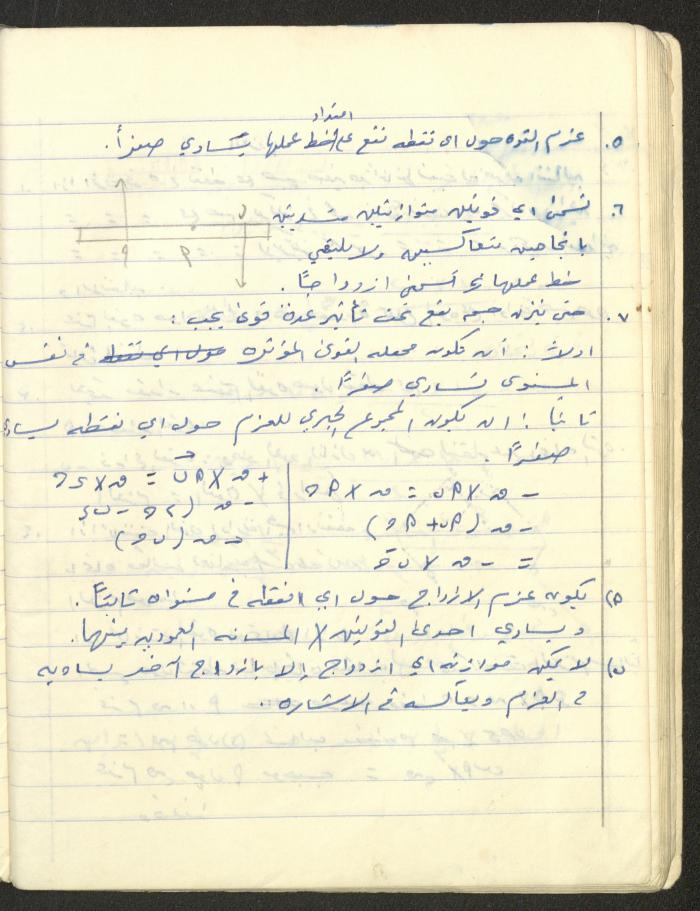 امتداد
٥. عزم القوة حول اي نقطه تقع على خط عملها يساوي صفراً.
٦. تسمى اي قوتين متوازيتين متساويتين
باتجاهين متعاكسين ولا يلتقي
خط عملها تسمى ازدواجاً.
٧. حتى يتزن جسم يقع تحت تأثير عدة قوى يجب:
اولاً: أن تكون محصله القوى المؤثره حول اي نقطه في نفس
المستوى تساوي صفراً.
ثانياً: ان يكون المجموع الجبري للعزم حول اي نقطه يساوي
صفراً.
- ق × ب م = ق × م ج
- ق (ب م + م ج)
= - ق × ب ج
م) يكون عزم الازدواج حول اي نقطه في مستواه ثابتاً.
ويساوي احدى القوتين × المسافه العموديه بينهما.
ب) لا يمكن موازنه اي ازدواج إلا بازدواج آخر يساويه
في العزم ويعاكسه في الاشاره.